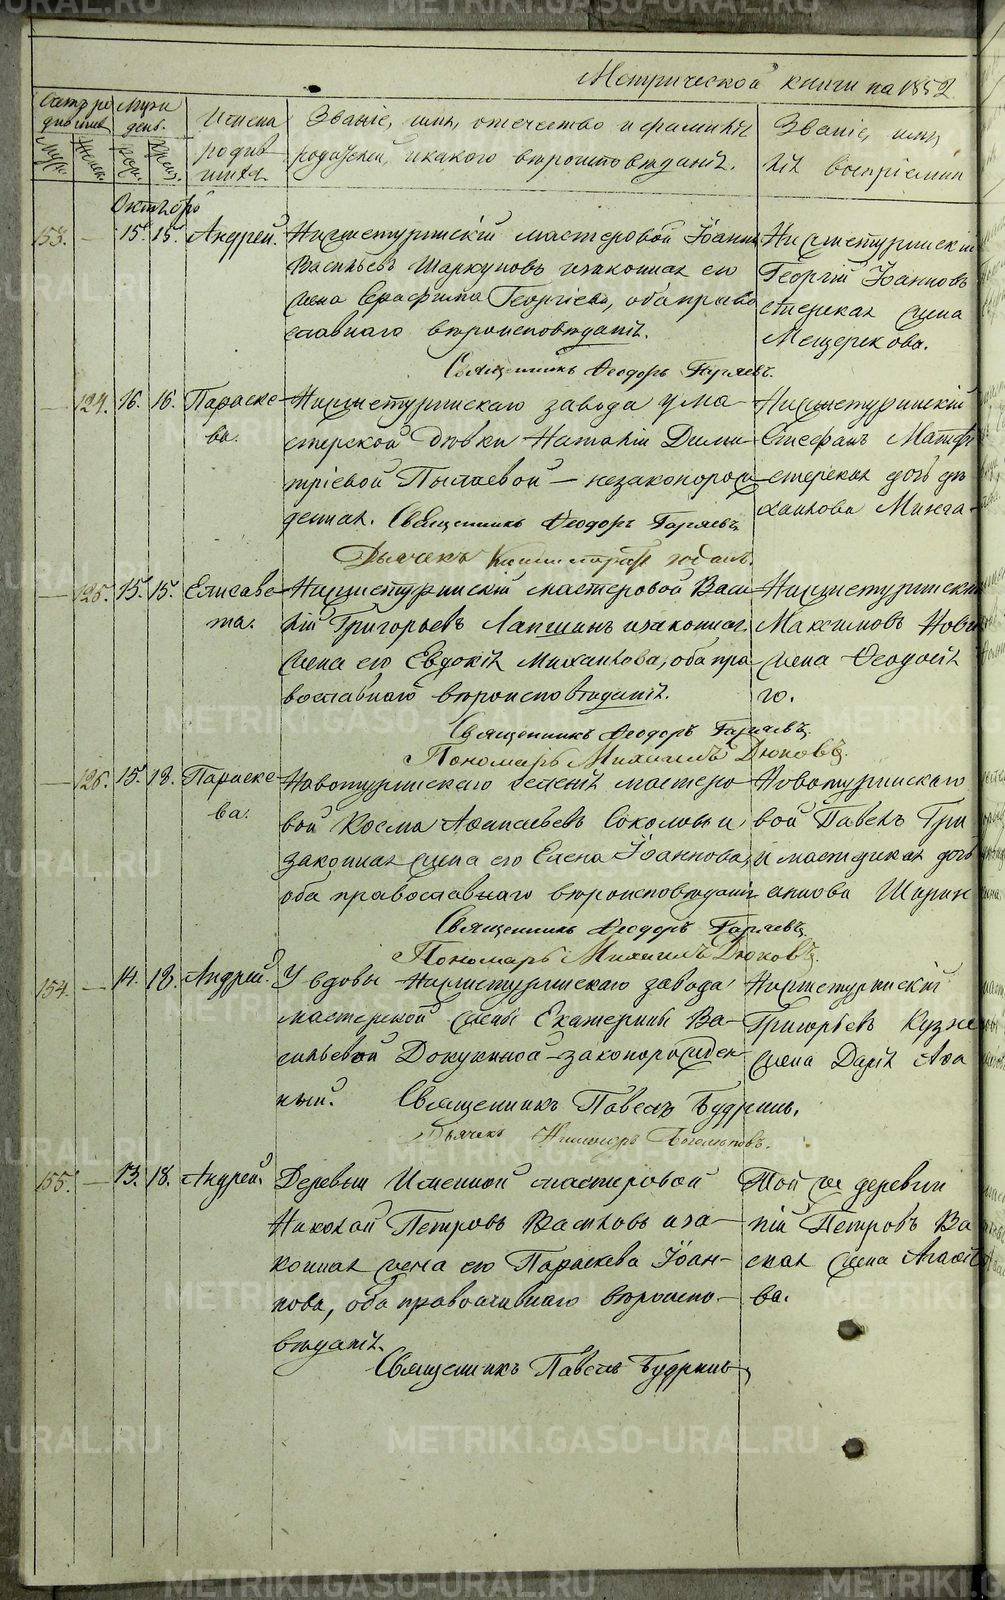 Метрической книги на 1852
Счетъ родившихся
Мѣсяцъ и день.
Имена родившихся
Званіе, имя, отечество и фамилія
родителей, и какого вѣроисповѣданія.
Званіе, имя,
лія воспріемни
Октябрь
153. — 15. 15. Андрей. Нижнетуринскій мастеровой Іоаннъ
Васильевъ Шаркуновъ и законная его
жена Серафима Георгіева, оба право
славнаго вѣроисповѣданія.
Священникъ Ѳеодоръ Гаряевъ.
Нижнетуринскій
Георгій Іоанновъ
стерская жена
Мещерекова.
— 124. 16. 16. Параске
ва.
Нижнетуринскаго завода у ма-
стерской дѣвки Наталіи Дими
тріевой Пылаевой — незаконорож
денная. Священникъ Ѳеодоръ Гаряевъ
Дьячекъ
Нижнетуринскій
Стефанъ
стерская дочь дѣ
— 125. 15. 15. Елисаве
та.
Нижнетуринскій мастеровой Васи
лій Григорьевъ Лапшинъ и законная
жена его Евдокія Михаилова, оба пра
вославнаго вѣроисповѣданія.
Священникъ Ѳеодоръ Гаряевъ
Пономарь Михаилъ Дюковъ.
Нижнетуринскій
Максимовъ Нови
жена Ѳеодосія
го.
— 126. 15. 18. Параске
ва.
Новотуринскаго селенія мастеро
вой Косма Аѳанасьевъ Соколовъ и
законная жена его Елена Іоаннова,
оба православнаго вѣроисповѣданія
Священникъ Ѳеодоръ Гаряевъ
Пономарь Михаилъ Дюковъ.
Новотуринскаго
вой Павелъ Гри
и мастерская дочь
анкова Ширин
154. — 14. 18. Андрей. У вдовы Нижнетуринскаго завода
мастерской жены Екатерины Ва-
сильевой Докукиной — законорожден
ный. Священникъ Павелъ Будринъ.
Дьячекъ
Нижнетуринскій
Григорьевъ Кузне
жена Дарія Аѳа
155. — 13. 18. Андрей. Деревни Именной мастеровой
Николай Петровъ Вали­ковъ и за-
конная жена его Параскева Іоан-
нова, оба православнаго вѣроиспо-
вѣданія.
Священникъ Павелъ Будринъ
Той же деревни
лій Петровъ Ва
ская жена Агаѳія
ва.
METRIKI.GASO-URAL.RU